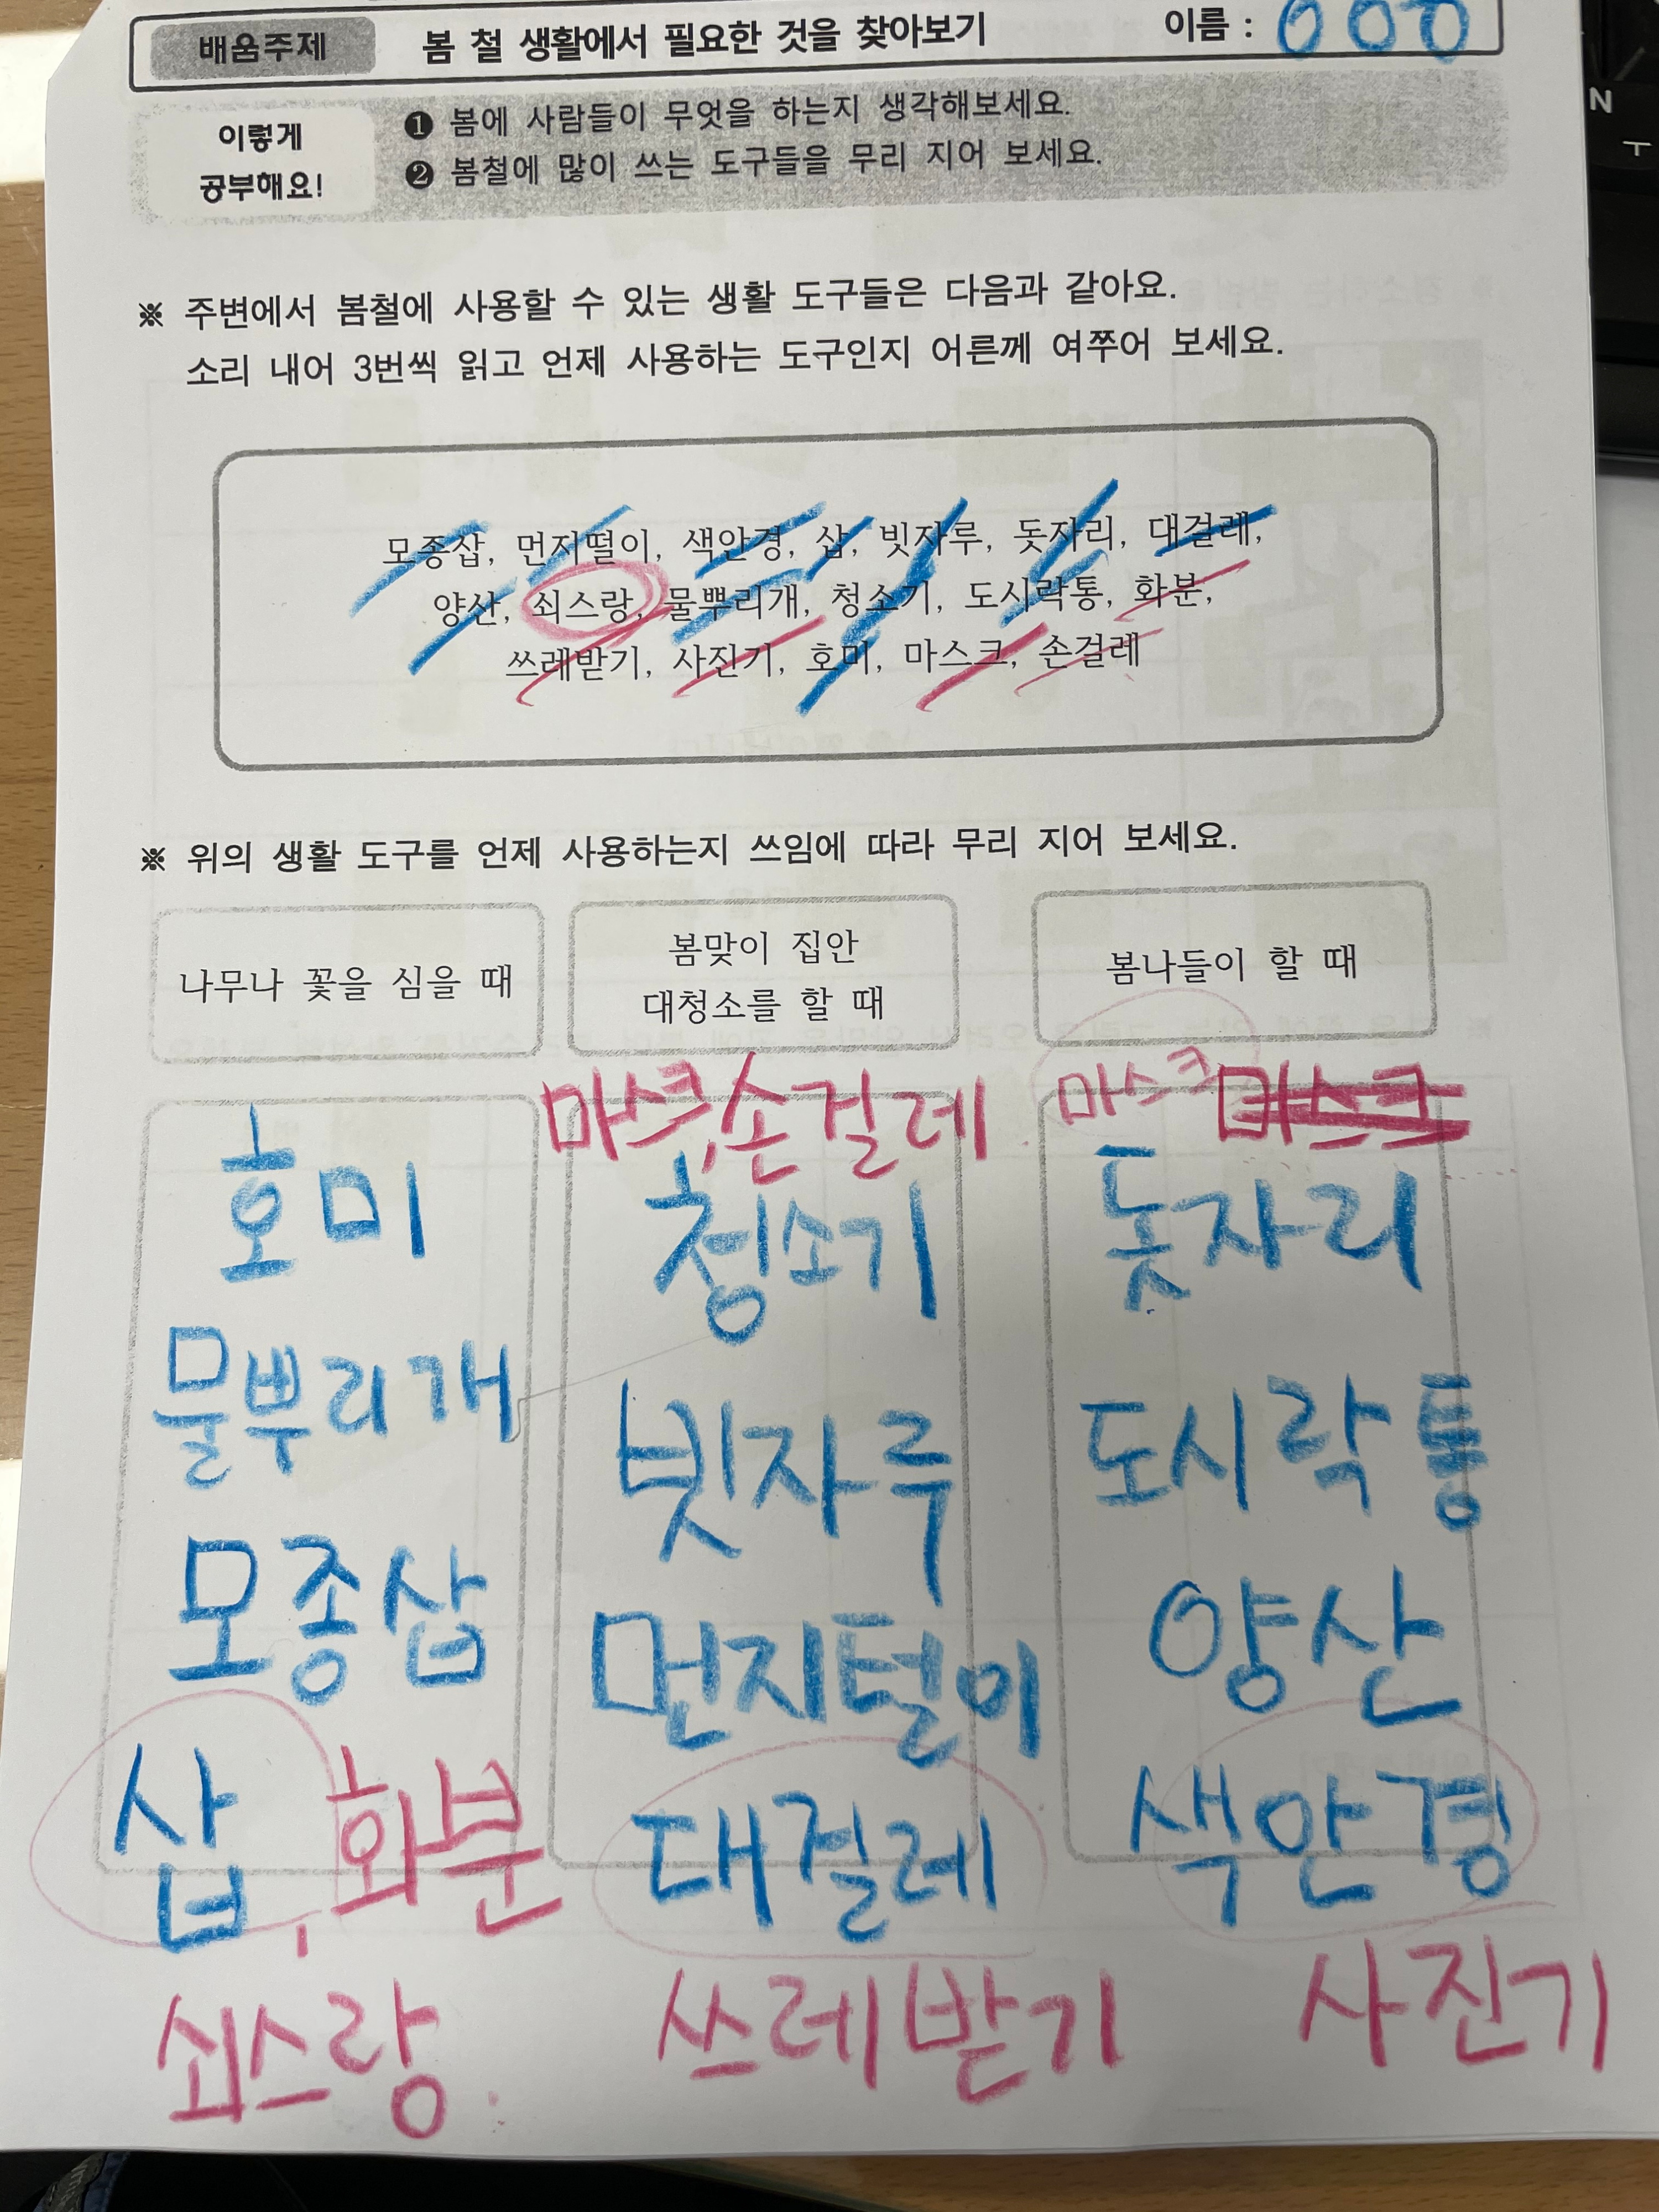 배움주제 봄 철 생활에서 필요한 것을 찾아보기 이름 : 000
이렇게
공부해요!
❶ 봄에 사람들이 무엇을 하는지 생각해보세요.
❷ 봄철에 많이 쓰는 도구들을 무리 지어 보세요.
※ 주변에서 봄철에 사용할 수 있는 생활 도구들은 다음과 같아요.
소리 내어 3번씩 읽고 언제 사용하는 도구인지 어른께 여쭈어 보세요.
모종삽, 먼지떨이, 색안경, 삽, 빗자루, 돗자리, 대걸레,
양산, 쇠스랑, 물뿌리개, 청소기, 도시락통, 화분,
쓰레받기, 사진기, 호미, 마스크, 손걸레
※ 위의 생활 도구를 언제 사용하는지 쓰임에 따라 무리 지어 보세요.
나무나 꽃을 심을 때
호미
물뿌리개
모종삽
삽, 화분
쇠스랑
봄맞이 집안
대청소를 할 때
마스크, 손걸레
청소기
빗자루
먼지털이
대걸레
쓰레받기
봄나들이 할 때
마스크 마스크
돗자리
도시락통
양산
색안경
사진기
N
ㅜ